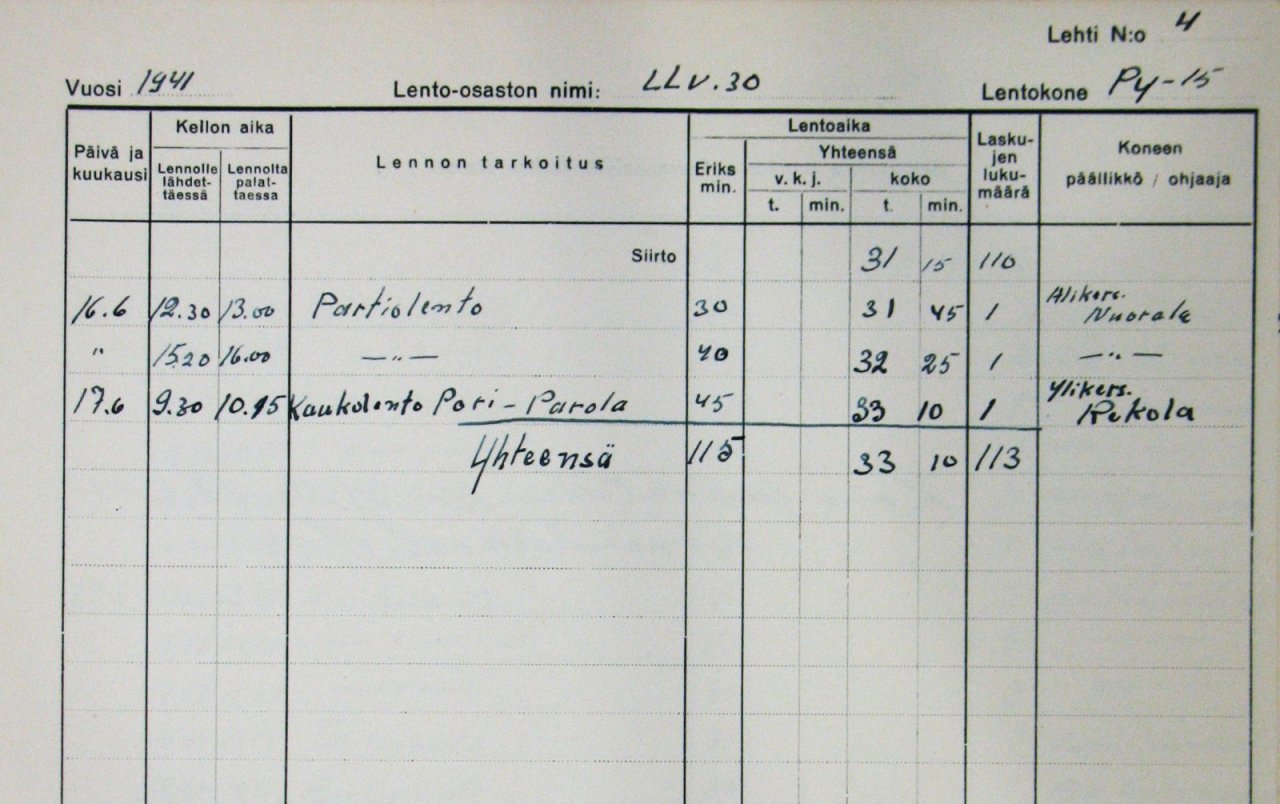 Lehti N:o 4
Vuosi 1941 Lento-osaston nimi: LLv.30 Lentokone Py-15
Päivä ja kuukausi Kellon aika Lennolle lähdet-täessä Lennolta palat-taessa Lennon tarkoitus Lentoaika Eriks min. Yhteensä v. k. j. t. min. koko t. min. Lasku-jen luku-määrä Koneen päällikkö / ohjaaja
Siirto 31 15 110
16.6 12.30 13.00 Partiolento 30 31 45 1 Alikers. Nuorala
" 15.20 16.00 —"— 40 32 25 1 —"—
17.6 9.30 10.15 Kaukolento Pori - Parola 45 33 10 1 Ylikers. Rekola
Yhteensä 115 33 10 113